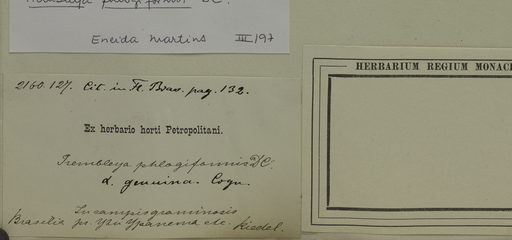 Trembleya phlogiformis DC.
Eneida Martins III/97
2160.127. Cit. in Fl. Bras. pag. 132.
Ex herbario horti Petropolitani.
Trembleya phlogiformis DC.
α. genuina. Cogn.
In campis graminosis
Brasilia pr. Ypanema etc. Riedel.
HERBARIUM REGIUM MONAC